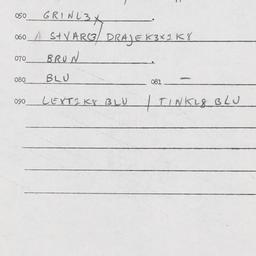 050 GRINL3X.
060 A STVARG/ DRAJEK3X2K8
070 BRUN.
080 BLU 081 –
090 LEVT2K8 BLU / TINKL8 BLU